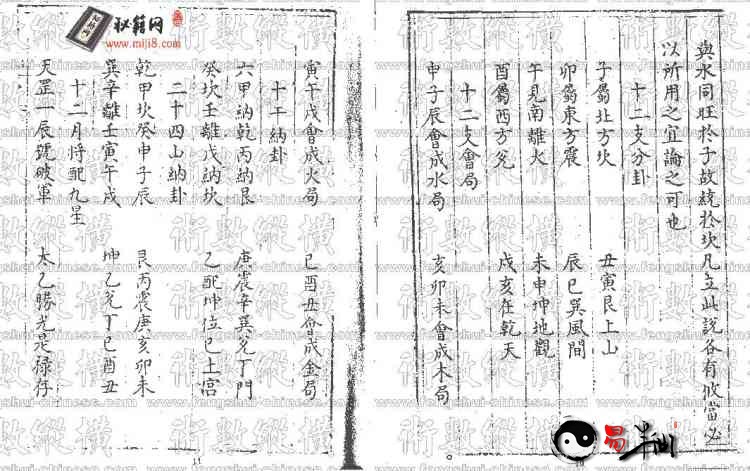 與水同旺於子故統於坎凡立此說各有攸當必
以所用之宜論之可也
十二支分卦
子屬北方坎 丑寅艮上山
卯屬東方震 辰巳巽風間
午見南離火 未申坤地觀
酉屬西方兌 戌亥在乾天
十二支會局
申子辰會成水局 亥卯未會成木局
寅午戌會成火局 巳酉丑會成金局
十干納卦
六甲納乾丙納艮 庚震辛巽兌丁門
癸坎壬離戊納坎 乙配坤位己土宮
二十四山納卦
乾甲坎癸申子辰 艮丙震庚亥卯未
巽辛離壬寅午戌 坤乙兌丁巳酉丑
十二月將配九星
天罡一辰號破軍 太乙勝光是祿存
秘籍网
www.miji8.com
術數縱橫
www.fengshui-chinese.com
易